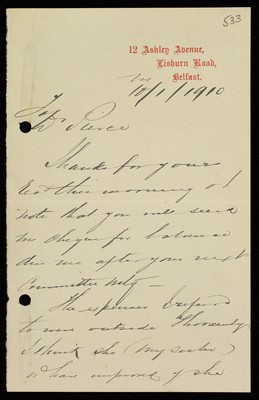 533
12 Ashley Avenue,
Lisburn Road,
Belfast.
10/1/1910
To
Dr Pierce
Thanks for yours
Recd this morning & I
note that you will send
me cheque for balance
due me after your next
Committee Mtg —
The expenses I referred
to were outside
I think she (my sister)
is have improved if she